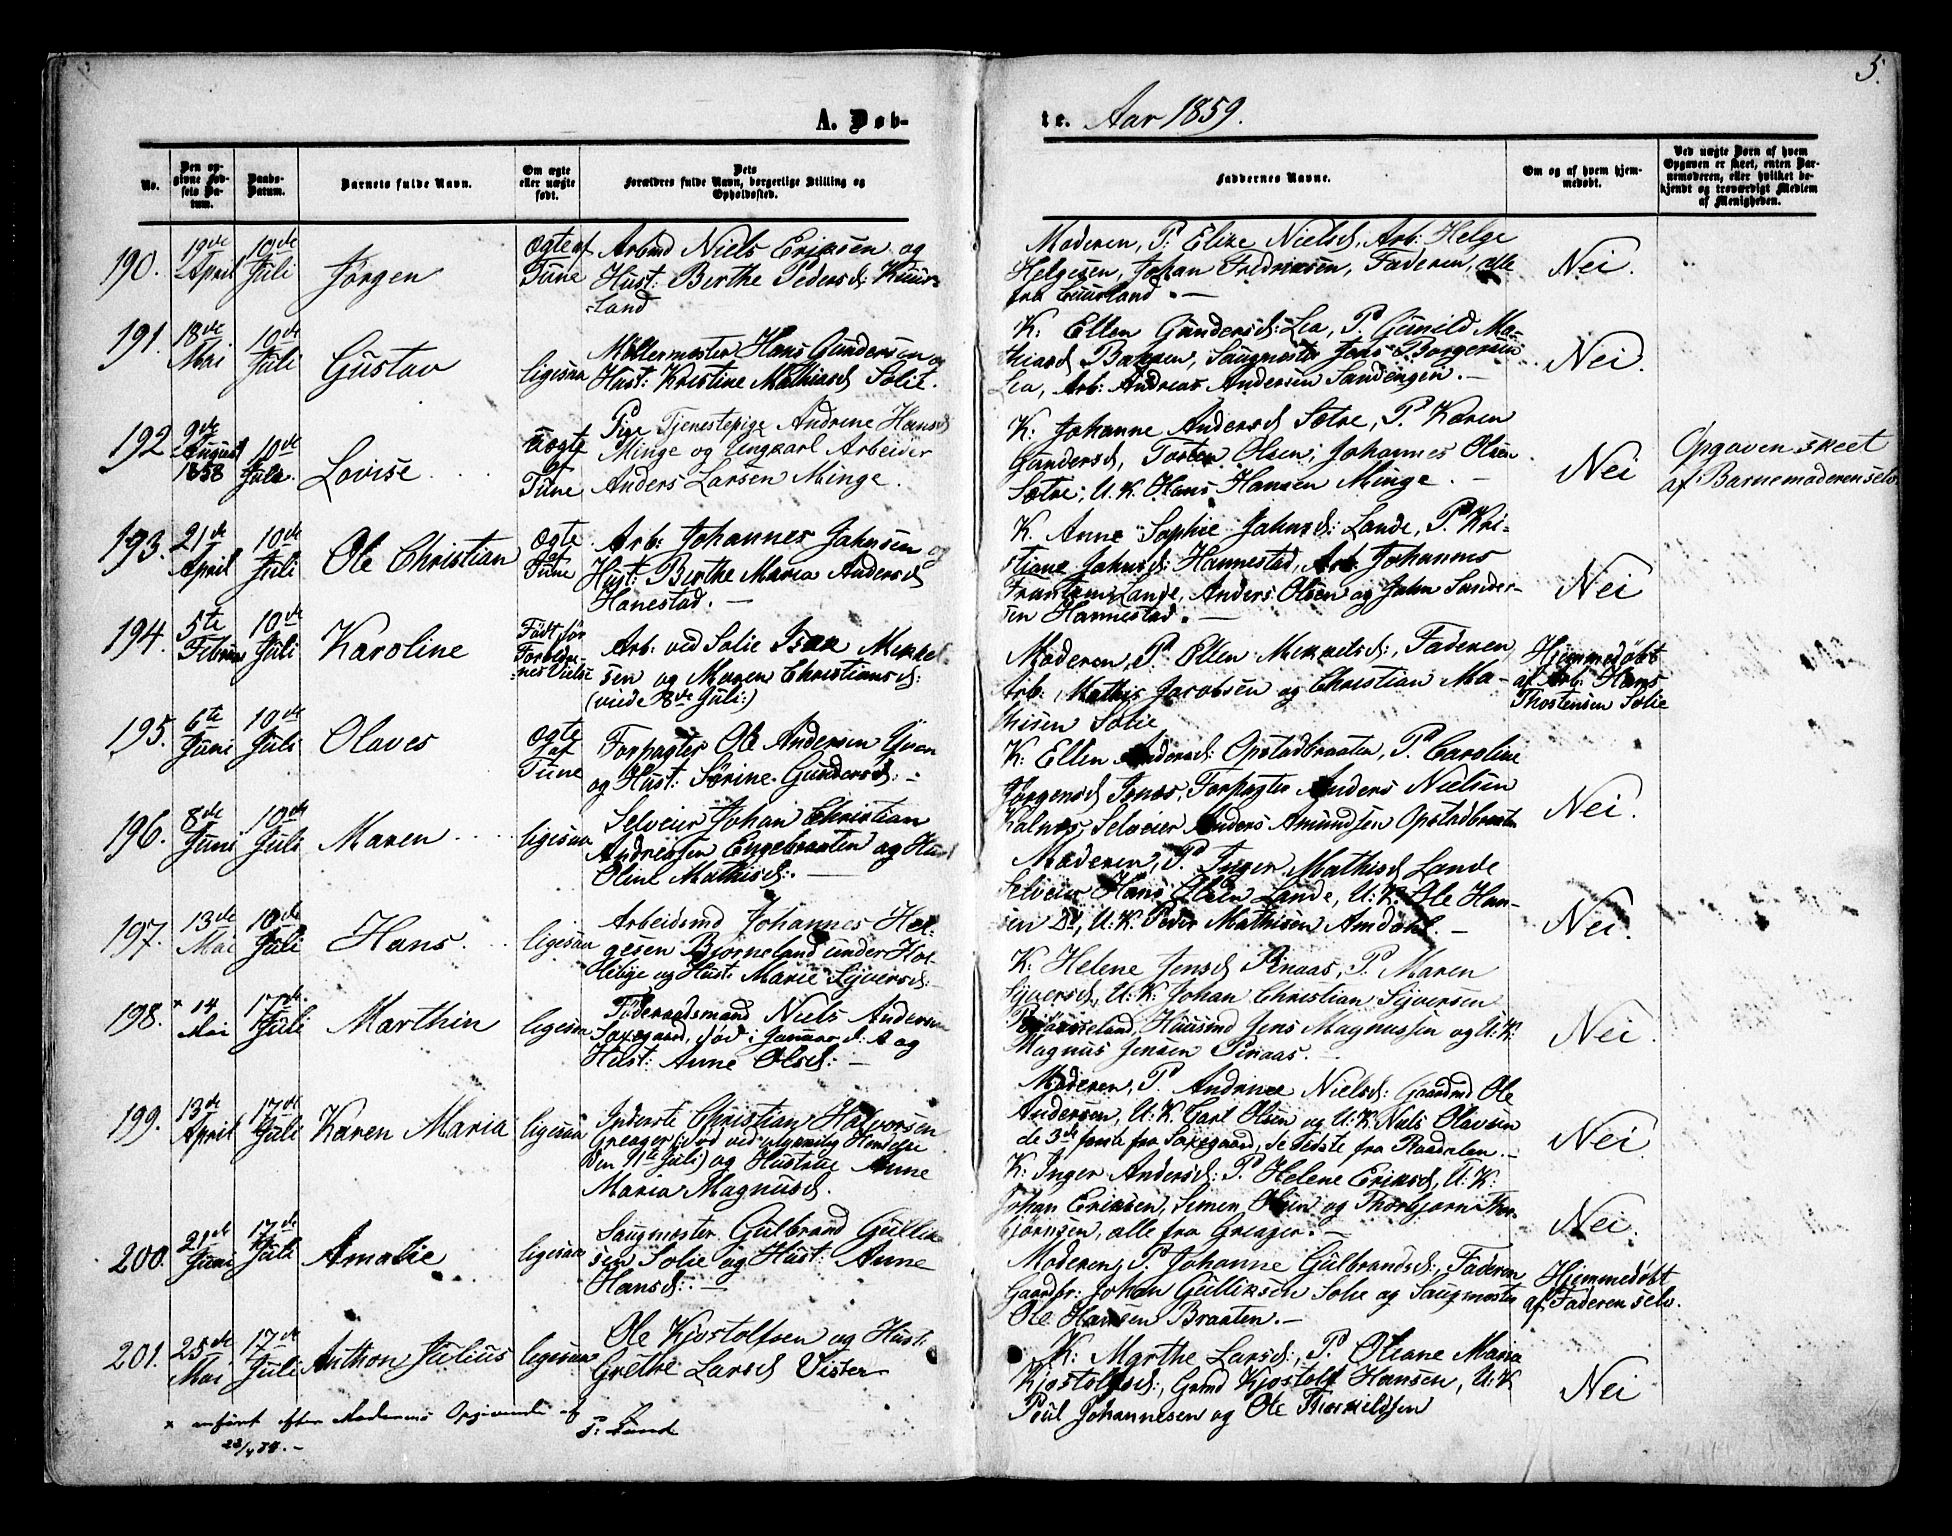 5.
A. Døb-
te. Aar 1859.
No.
Den op-
givne Fød-
sels Da-
tum.
Daabs-
Datum.
Barnets fulde Navn.
Om ægte
eller uægte
født.
Dets
Forældres fulde Navn, borgerlige Stilling og
Opholdssted.
Faddernes Navne.
Om og af hvem hjem-
medøbt.
Ved uægte Børn af hvem
Opgaven er skeet, enten Bar-
nemoderen, eller hvilket be-
kjendt og troværdigt Medlem
af Menigheden.
190.
19de
April
10de
Juli
Jørgen
Ægte af
Tune
Arbmd Niels Eriksen og
Hust: Berthe Pedersd:
land
Moderen, P: Elize Nielsd, Arb: Helge
Helgesen, Johan Fredriksen, Faderen, alle
fra
Nei.
191.
18de
Mai
10de
Juli
Gustav
ligesaa
Møllermester Hans Gundersen og
Hust: Kristine Mathiasd Solie.
K: Ellen Gundersd: Lea, P. Gunild Ma-
thiasd Saugmester Jens Borgersen
Lea, Arb: Andreas Andersen Sandengen. —
Nei.
192
9de
August
1858
10de
Juli.
Lovise
Uægte
af
Tune
Pige Tjenestepige Andrine Hansd
Minge og Ungkarl Arbeider
Anders Larsen Minge.
K: Johanne Andersd Sætre, P. Karen
Gundersd, Torsten Olsen, Johannes Olsen
Sætre, U.K. Hans Hansen Minge. —
Nei
Opgaven skeet
af Barnemoderen selv
193.
21de
April
10de
Juli
Ole Christian
Ægte
af
Tune
Arb: Johannes Jahnsen og
Hust: Berthe Maria Andersd
Hanestad. —
K. Anne Sophie Jahnsd: Lande, P. Kri-
stiane Jahnsd: Hannestad, Arb: Johannes
Frantsen Lande, Anders Olsen og Jahn Sander-
sen Hannestad. —
Nei
194.
5te
Februar
10de
Juli
Karoline
Født før
Forældre-
nes Vielse
Arb: ved Solie Isak Mikkel-
sen og Maren Christiansd:
(viede 8de Juli:)
Moderen, P. Ellen Mikkelsd:, Faderen,
Arb: Mathis Jacobsen og Christian Ma-
thisen Solie
Hjemmedøbt
af Arb: Hans
Thostensen Solie
195.
6te
Juni
10de
Juli
Olaves
Ægte
af
Tune
Forpagter Ole Andersen
og Hust: Sørine Gundersd: -
K: Ellen Andersd: Opstadbraaten, P. Caroline
Jørgensd Forpagter Anders Nielsen
Kalnæs, Selveier Anders Amundsen Opstadbraaten
Nei.
196.
8de
Juni
10de
Juli
Maren
ligesaa
Selveier Johan Christian
Andreasen Engebraaten og Hust
Oline Mathisd:. —
Moderen, P. Inger Mathisd Lande
Selveier Hans Olsen Lande, U.K. Ole Han-
sen Do, U.K. Peder Mathisen Amdahl. —
Nei.
197.
13de
Mai
10de
Juli
Hans.
ligesaa
Arbeidsmd Johannes Hel-
gesen Bjørneland under
og Hust. Marie Syversd:
K: Helene Jensd Pinaas, P. Maren
Syversd, U:K: Johan Christian Syversen
Bjørneland, Huusmd Jens Magnussen og U:K:
Magnus Jensen Pinaas. —
Nei.
198.
× 14
Mai
17de
Juli
Marthin
ligesaa
Føderaadsmand Niels Andersen
Saxegaard, død i Januar d: A og
Hust: Anne Olsd: —
Moderen, P. Andrine Nielsd: Gaardmd Ole
Andersen, U:K. Carl Olsen og U:K. Niels Olavsen
de 3de første fra Saxegaard, de sidste fra Raadalen. —
Nei
199.
13de
April
17de
Juli
Karen Maria
ligesaa
Inderste Christian Halvorsen
Greager (død ved ulykkelig Hændelse
den 11te Juli) og Hustrue Anne
Maria Magnusd.
K: Inger Andersd: P. Helene Eriksd, U:K:
Johan Eriksen, Simen Olsen og Thorbjørn Thor-
bjørnsen, alle fra Greager. —
Nei.
200.
21de
Juni
17de
Juli
Amalie
ligesaa
Saugmester Gulbrand Gullik-
sen Solie og Hust: Anne
Hansd:. —
Moderen, P. Johanne Gulbrandsd:, Faderen,
Gaardbr: Johan Gulliksen Solie og Saugmester
Ole Hansen Braaten. —
Hjemmedøbt
af Faderen selv.
201.
25de
Mai
17de
Juli
Anthon Julius
ligesaa
Ole Kjostolfsen og Hust:
Grethe Larsd Vister
K: Marthe Larsd:, P. Oliane Maria
Kjostolfsd:, Grmd Kjostolf Hansen, U:K
Poul Johannesen og Ole Thorkildsen
Nei
× anført efter Moderens Opgivende af
23/4 74. —